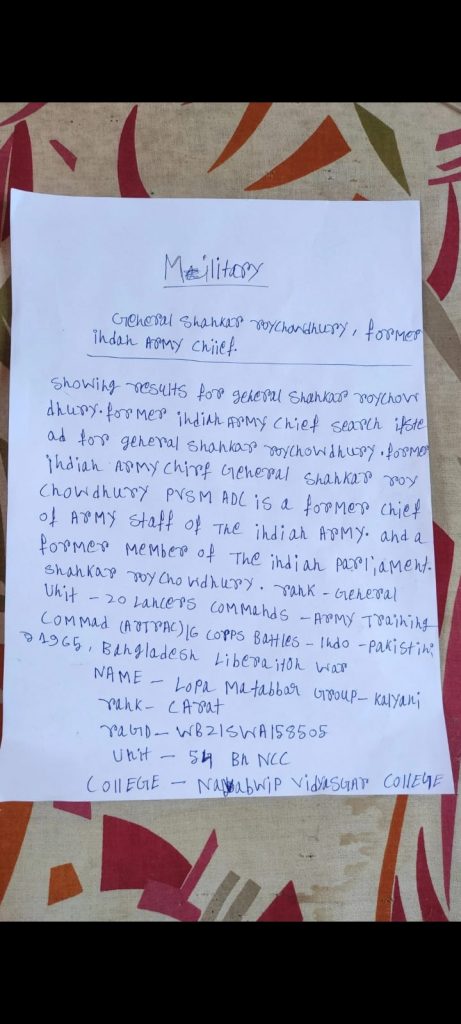 Military
General Shankar roychowdhury, former
indan ARMY chiief.
showing results for general shankar roychow
dhury. former indian ARMY chief search inste
ad for general shankar roychowdhury. former
indian ARMY chirf General shankar roy
chowdhury PVSM ADC is a former chief
of ARMY staff of The indian ARMY. and a
former member of The indian parliament.
shankar roychowdhury. rank - General
Unit - 20 Lancers commands - ARMY Training
commad (ARTRAC) 16 corps Battles - Indo - pakistini
1965, Bangladesh Liberaiton war
NAME - Lopa Matabbar Group - Kalyani
rank - CArat
ragiD - WB21SWA158505
Unit - 54 Bn NCC
COllEGE - Nabadwip VidyASGAr COllEGE